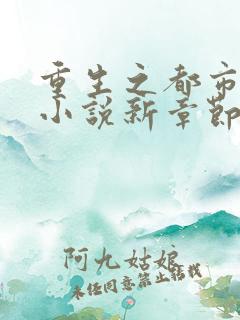 重生之都市
小说新章节
阿九姑娘
未经同意禁止转载